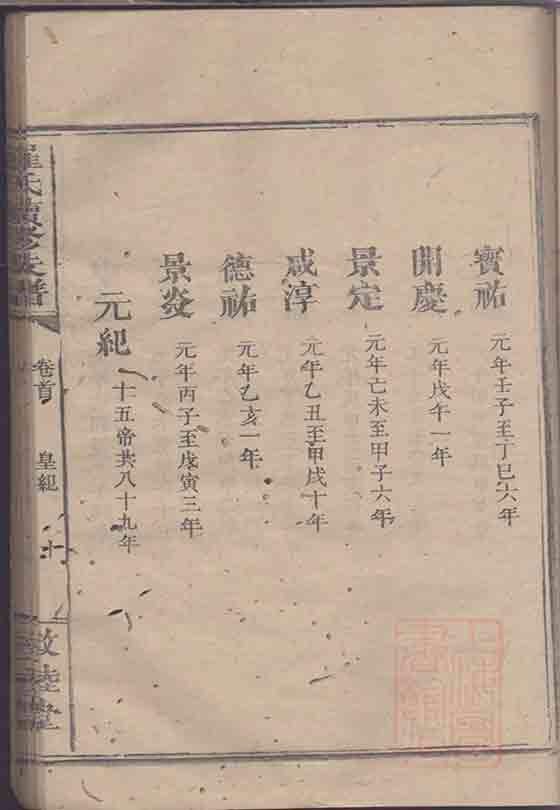 寶祐 元年壬子至丁巳六年
開慶 元年戊午一年
景定 元年己未至甲子六年
咸淳 元年乙丑至甲戌十年
德祐 元年乙亥一年
景炎 元年丙子至戊寅三年
元紀 十五帝共八十九年
氏 修 譜 卷首 皇紀 十 敦睦堂